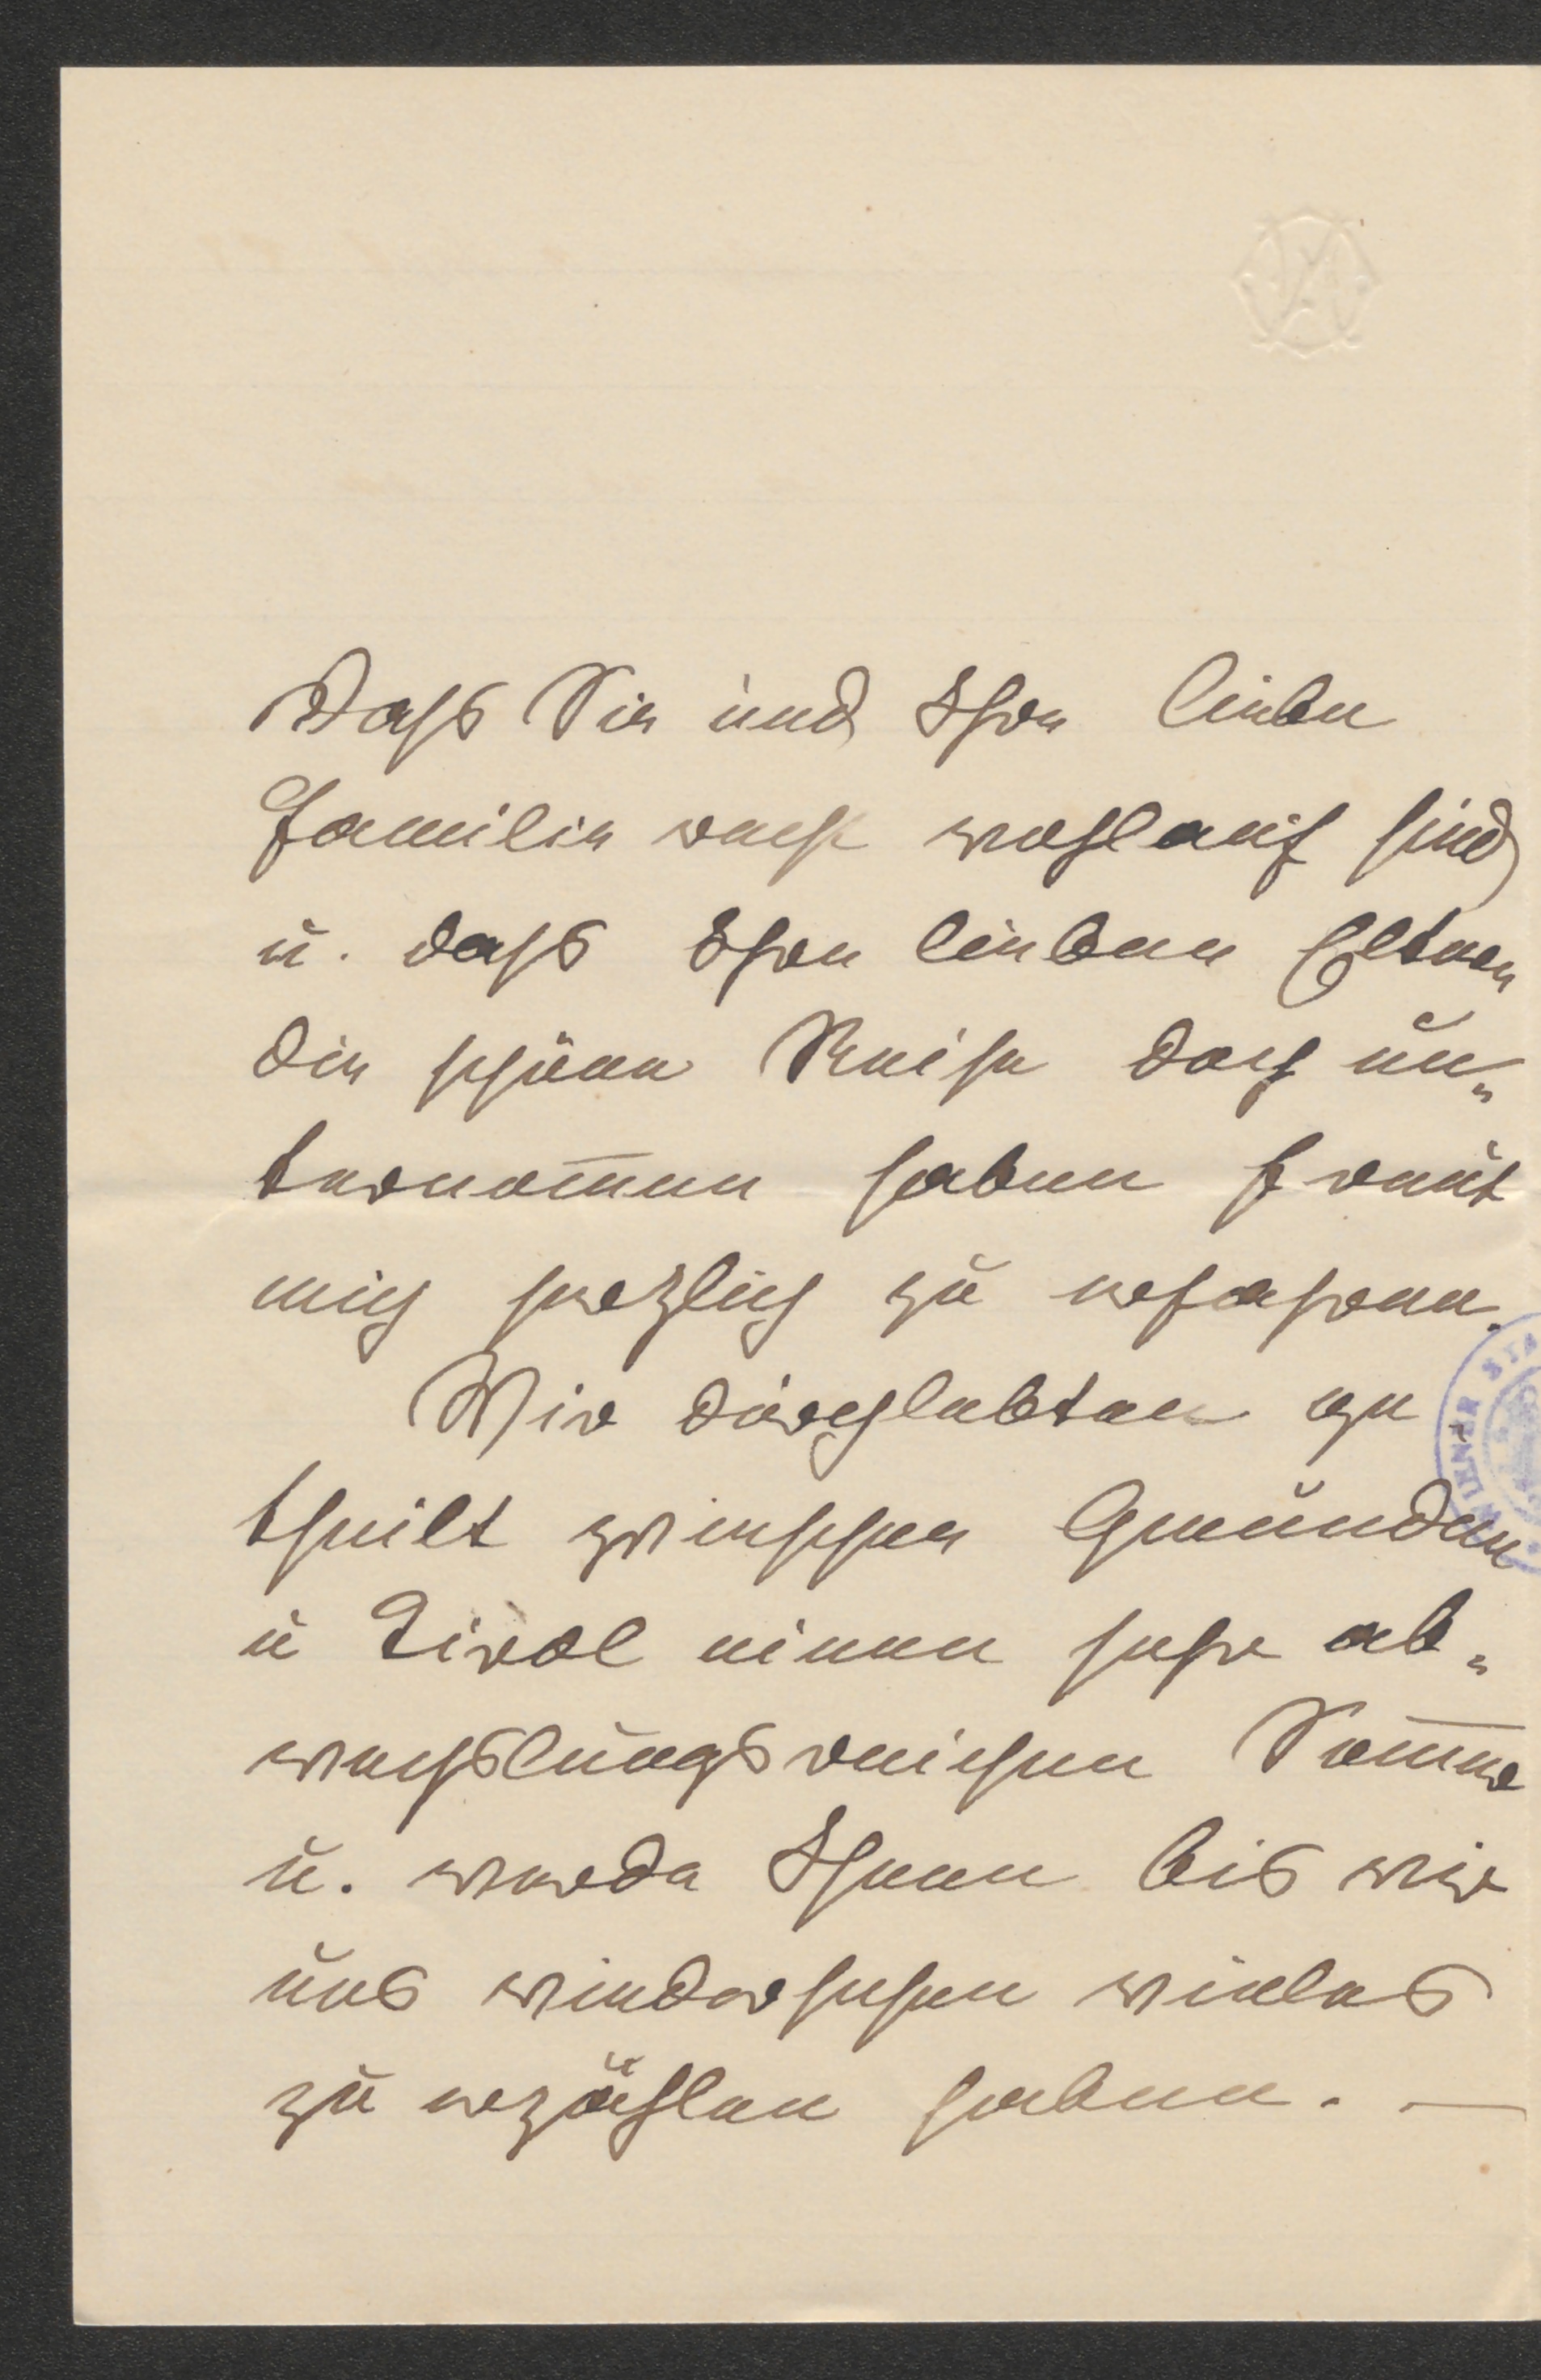 Dass Sie und Ihre liebe
Familie recht wohlauf sind
u. dass Ihre lieben Eltern
die schöne Reise doch un„
ternom̅en haben freut
mich herzlich zu erfahren.
Wir durchlebten ge
theilt zwischen Gmunden
u Tirol einen sehr ab„
wechslungsreichen Som̅er
u. werde Ihnen bis wir
uns wiedersehen vieles
zu erzählen haben. —
WIENER STA